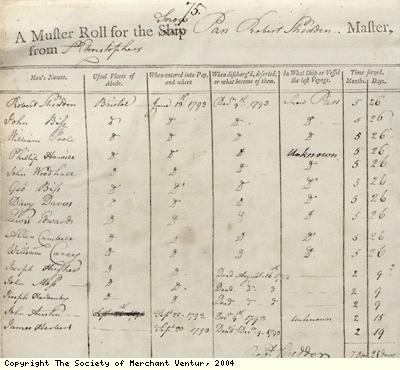 75.
Snow
A Muster Roll for the Ship Pan Robert Shedden Master,
from St Christophers
Men's Names. Usual Places of Abode. When entered into Pay, and where When discharg'd, deserted, or what become of them. In What Ship or Vessel the last Voyage. Time served. Months; Days.
Robert Shedden Bristol June 12th 1793 Decr 9th 1793 Snow Pan 5 26
John Biss Do Do Do Do 5 26
William Poole Do Do Do Do 5 26
Phillip Howell Do Do Do Unknown 5 26
John Woodhall Do Do Do Do 5 26
Geo Biss Do Do Do Do 5 26
Davy Davies Do Do Do Do 5 26
Edwards Do Do Do Do 5 26
Allen Do Do Do Do 5 26
William Carey Do Do Do Do 5 26
Joseph Hughes Do Dead August 16th 1793 2 9
John Moss Do Dead Do Do 2 9
Joseph Do Dead Do Do 2 9
John Austin Sept 25. 1793 Decr 9th 1793 Unknown 2 15
James Herbert Sept 20 1793 Dead Decr 9. 1793 2 19
Robt Shedden
Copyright The Society of Merchant Ventur, 2004